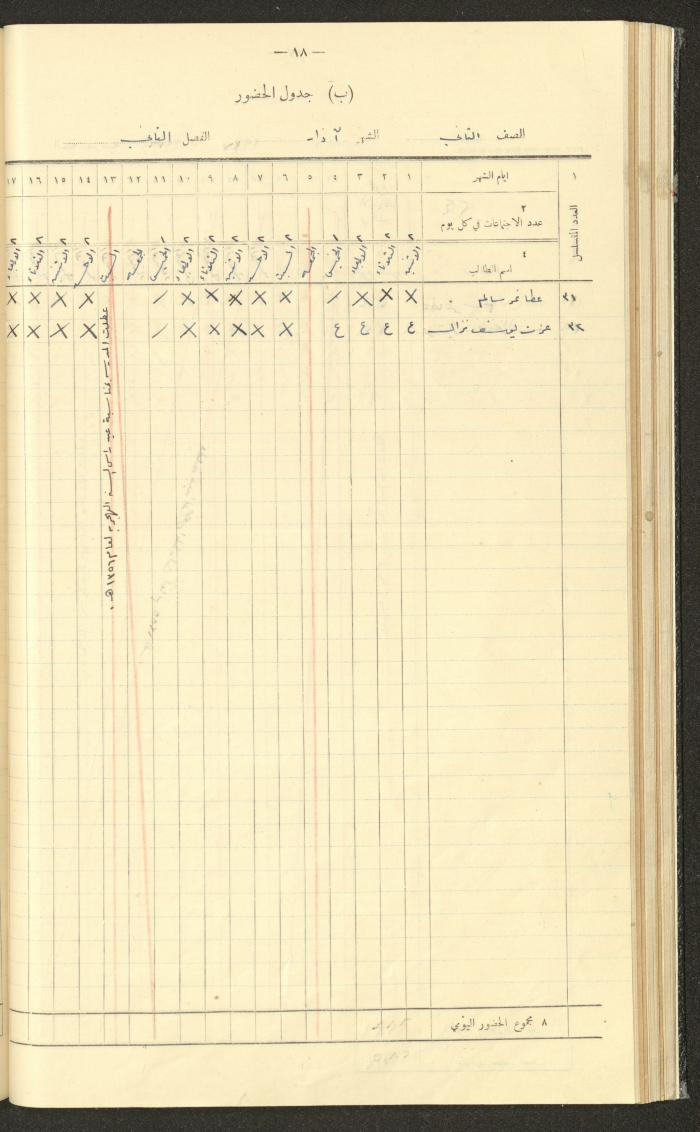 — ١٨ —
(ب) جدول الحضور
الصف الثاني الشهر آذار الفصل الثاني
١ ايام الشهر ١ ٢ ٣ ٤ ٥ ٦ ٧ ٨ ٩ ١٠ ١١ ١٢ ١٣ ١٤ ١٥ ١٦ ١٧
العدد المتسلسل
٢
عدد الاجتماعات في كل يوم ٢ ٢ ٢ ١ ٢ ٢ ٢ ٢ ٢ ١ ٢ ٢ ٢ ٢
٤
اسم الطالب الاثنين الثلاثاء الاربعاء الخميس الجمعة السبت الاحد الاثنين الثلاثاء الاربعاء الخميس الجمعة السبت الاحد الاثنين الثلاثاء الاربعاء
٣١ عطا نمر سالم X X X / X X X X X / X X X X
٣٢ عزت يوسف نزال ع ع ع ع X X X X X / X X X X
عطلت المدرسة بمناسبة عيد راس السنة الهجرية لعام ١٣٥٦ هـ.
٨ مجموع الحضور اليومي